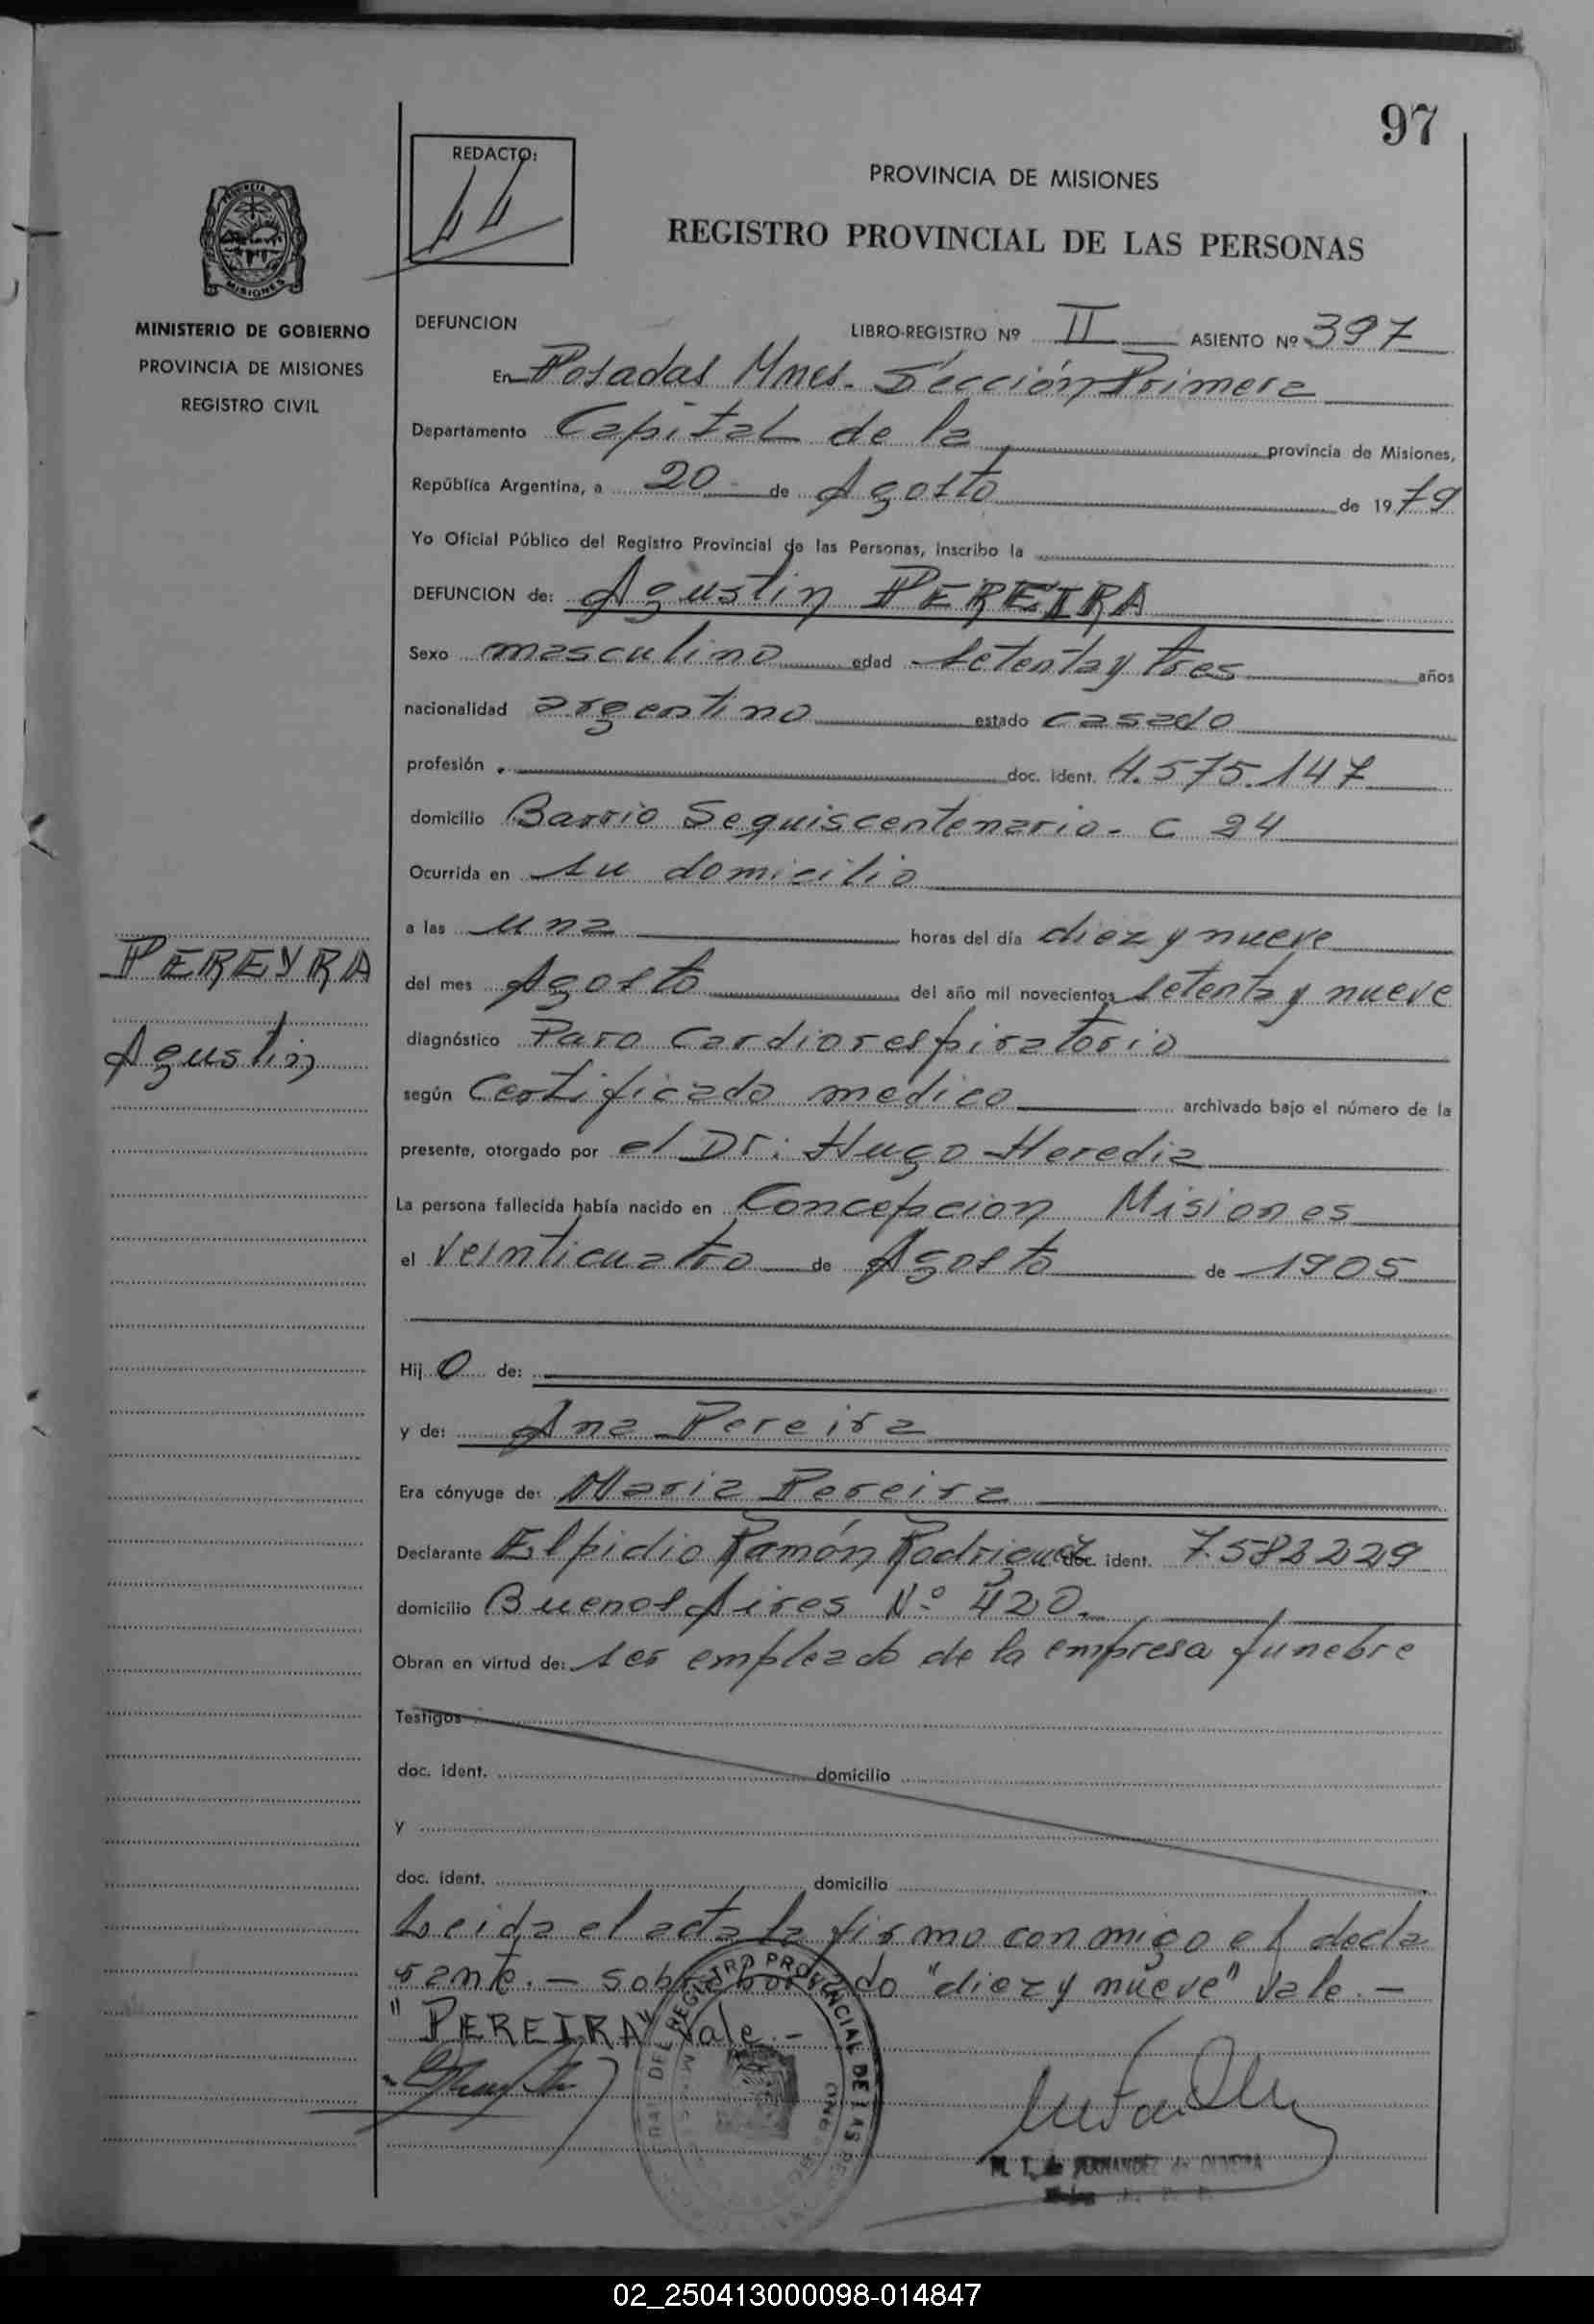 97
REDACTO:
PROVINCIA DE MISIONES
REGISTRO PROVINCIAL DE LAS PERSONAS
MISIONES
MINISTERIO DE GOBIERNO
PROVINCIA DE MISIONES
REGISTRO CIVIL
DEFUNCION LIBRO-REGISTRO Nº II ASIENTO Nº 397
En Posadas Mnes. Sección Primera
Departamento Capital de la provincia de Misiones,
República Argentina, a 20 de Agosto de 1979
Yo Oficial Público del Registro Provincial de las Personas, inscribo la
DEFUNCION de: Agustin PEREIRA
Sexo masculino edad setenta y tres años
nacionalidad argentino estado casado
profesión doc. ident. 4.575.147
domicilio Barrio Sequiscentenario - C 24
Ocurrida en su domicilio
a las una horas del día diez y nueve
del mes Agosto del año mil novecientos setenta y nueve
PEREYRA
Agustin
diagnóstico Paro Cardiorespiratorio
según Certificado medico archivado bajo el número de la
presente, otorgado por el Dr: Hugo Heredia
La persona fallecida había nacido en Concepcion Misiones
el veinticuatro de Agosto de 1905
Hij o de:
y de: Ana Pereira
Era cónyuge de: Maria Pereira
Declarante Elpidio Ramón Rodriguez doc. ident. 7.582229
domicilio Buenos Aires Nº 420.
Obran en virtud de: ser empleado de la empresa funebre
Testigos
doc. ident. domicilio
y
doc. ident. domicilio
Leida el acta la firma conmigo el decla
rante. - sobreborrado "diez y nueve" Vale. -
"PEREIRA" Vale. -
DEL REGISTRO PROVINCIAL DE LAS
M. T. de FERNANDEZ de OLIVEIRA
02_250413000098-014847